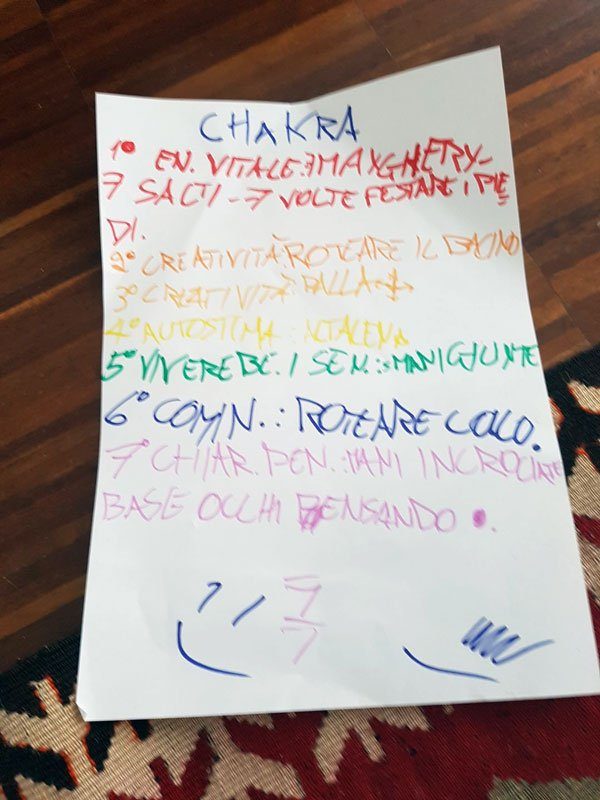 CHAKRA
1° EN. VITALE:
7 SALTI - 7 VOLTE PESTARE I PIE
DI.
2° CREATIVITÀ: ROTEARE IL BACINO
3° CREATIVITÀ:
4° AUTOSTIMA: ALTALENA
5° VIVERE BE. I SEN.: MANI GIUNTE
6° COMN.: ROTEARE COLLO.
7° CHIAR. PEN.: MANI INCROCIATE
BASE OCCHI PENSANDO